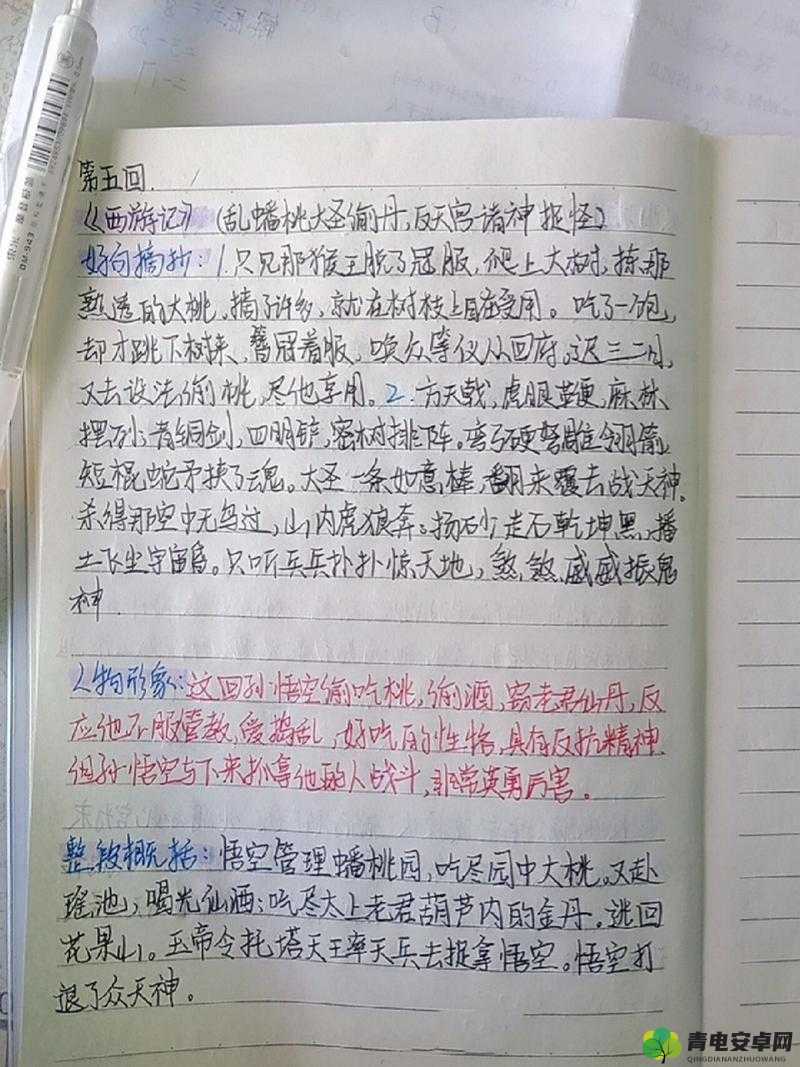 第五回.
《西游记》(乱蟠桃大圣偷丹,反天宫诸神捉怪)
好句摘抄:1.只见那猴王脱了冠服,爬上大树,拣那
熟透的大桃,摘了许多,就在树枝上自在受用。吃了一饱,
却才跳下树来,簪冠着服,唤众等仪从回府。迟三二日,
又去设法偷桃,尽他享用。2.方天戟,虎眼鞭,麻林
摆列;青铜剑,四明铲,密树排阵。弯弓硬弩雕翎箭,
短棍蛇矛挟了魂。大圣一条如意棒,翻来覆去战天神。
杀得那空中无鸟过,山内虎狼奔。扬砂走石乾坤黑,播
土飞尘宇宙昏。只听兵兵扑扑惊天地,煞煞威威振鬼
神.
人物形象:这回孙悟空偷吃桃,偷酒,窃老君仙丹,反
应他不服管教,爱捣乱,好吃的性格,具有反抗精神.
但孙悟空与下来抓拿他的人战斗,非常英勇厉害。
整段概括:悟空管理蟠桃园,吃尽园中大桃。又赴
瑶池,喝光仙酒;吃尽太上老君葫芦内的金丹。逃回
花果山。玉帝令托塔天王率天兵去捉拿悟空。悟空打
退了众天神。
青电安卓网
QINGDIANANZHUOWANG